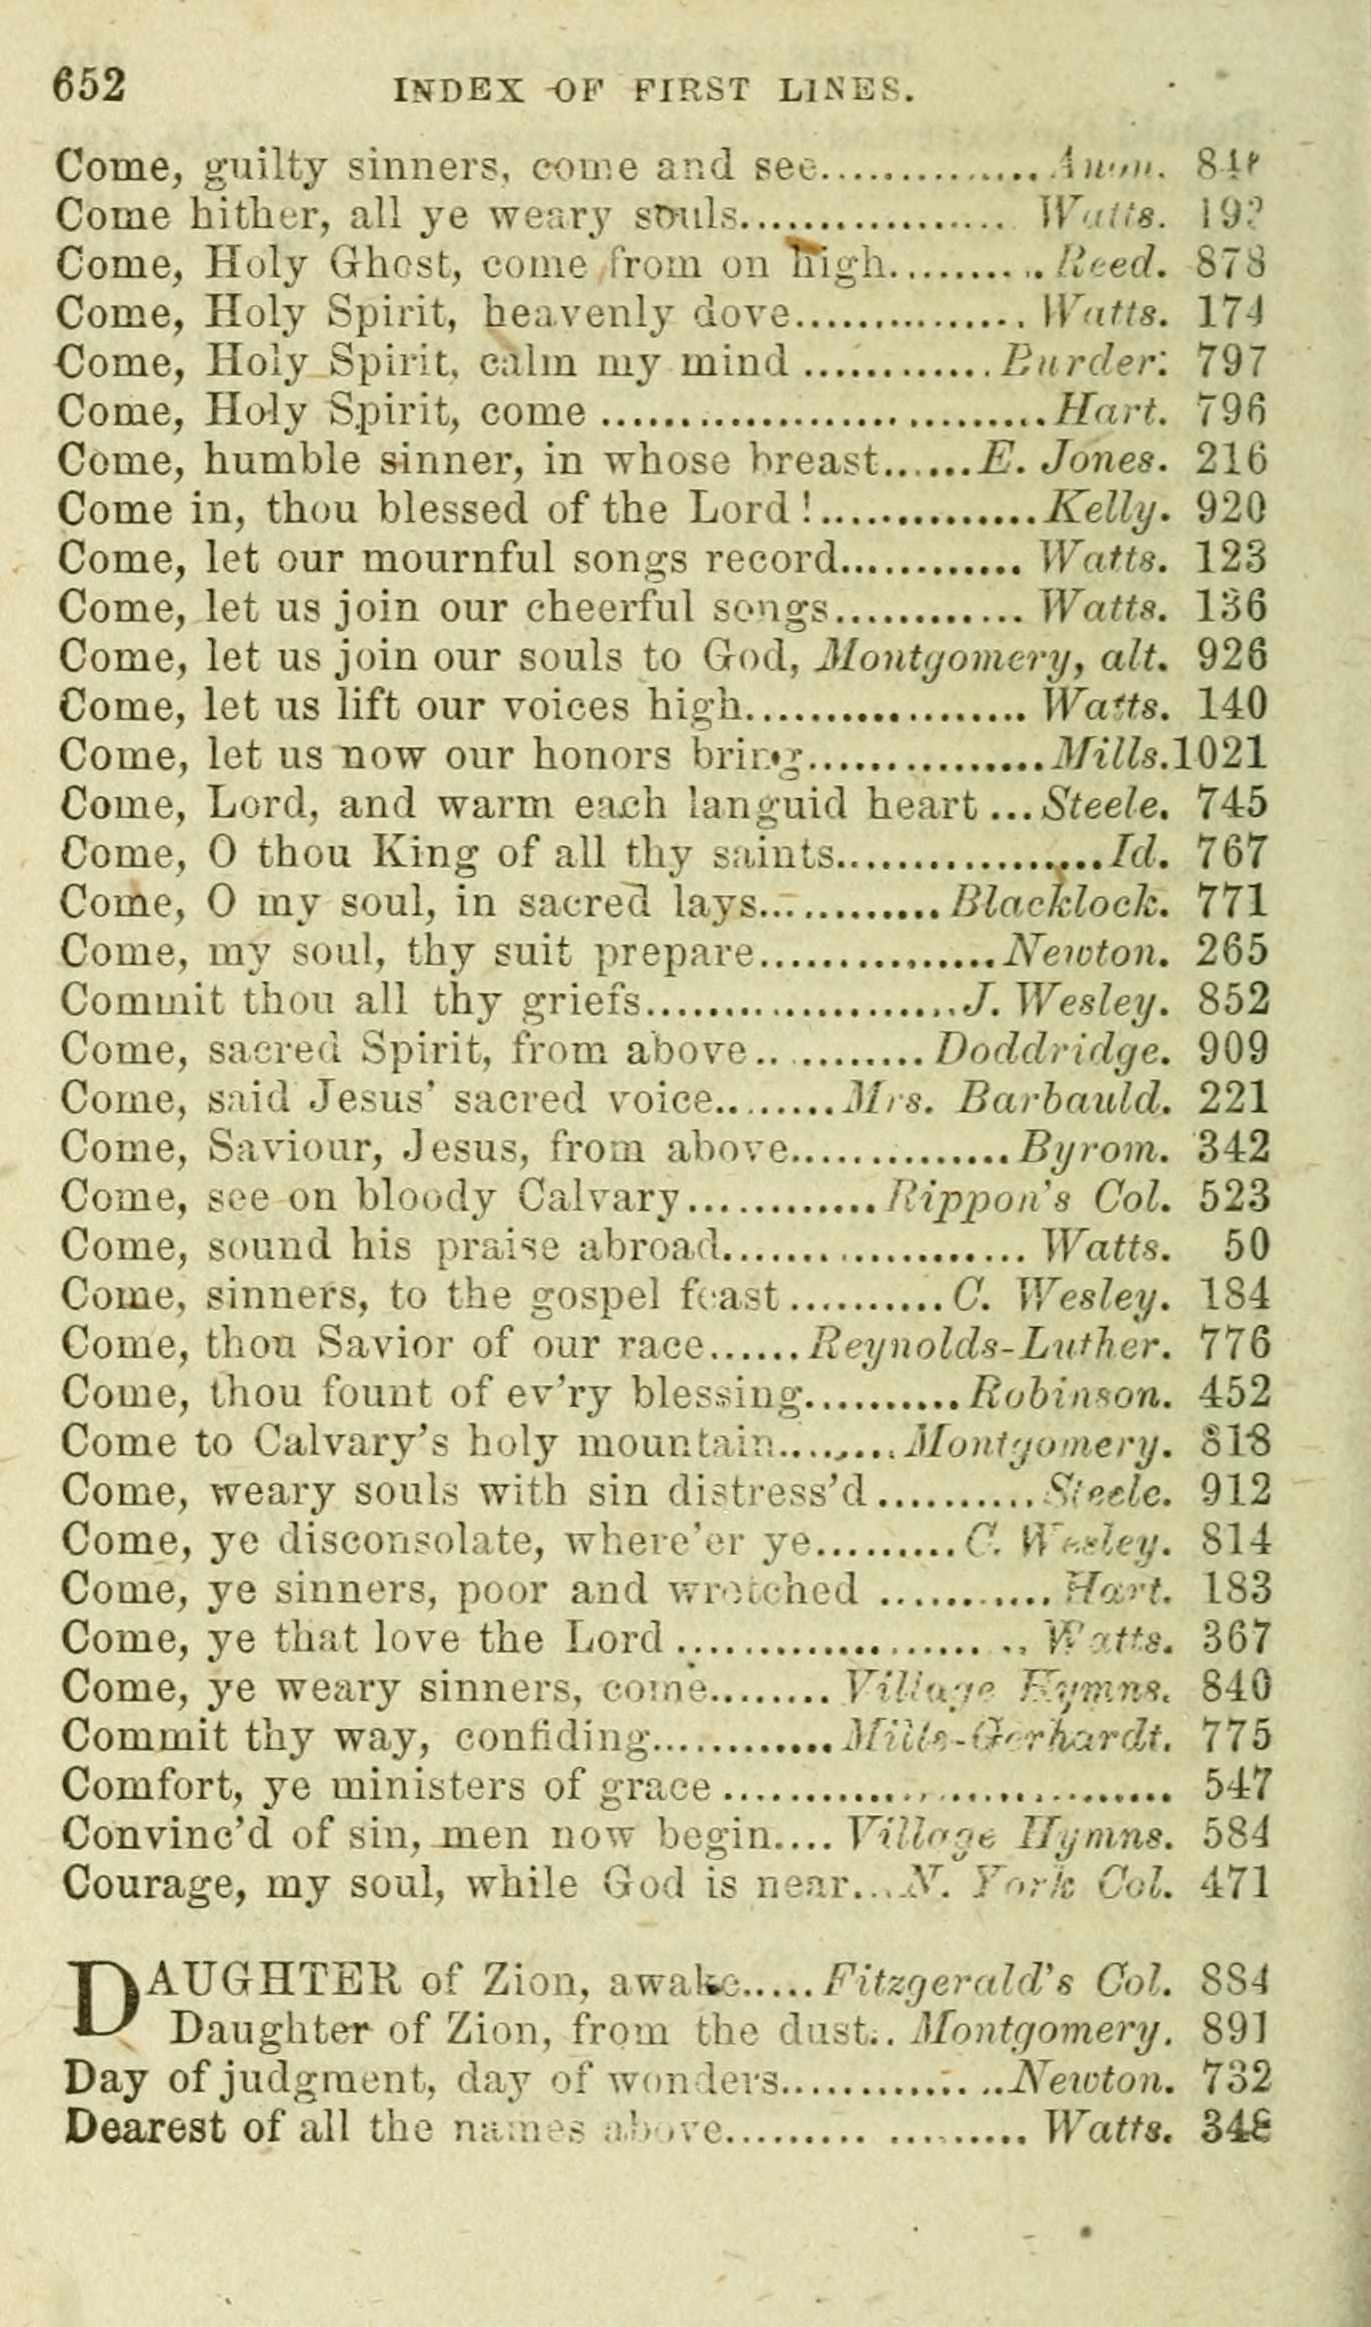 652 INDEX OF FIRST LINES.
Come, guilty sinners, come and see............... Anon.
Come hither, all ye weary souls.................. Watts.
Come, Holy Ghost, come from on high........... Reed. 878
Come, Holy Spirit, heavenly dove............... Watts. 174
Come, Holy Spirit, calm my mind ............ Burder. 797
Come, Holy Spirit, come ............................ Hart. 796
Come, humble sinner, in whose breast......E. Jones. 216
Come in, thou blessed of the Lord!..............Kelly. 920
Come, let our mournful songs record............ Watts. 123
Come, let us join our cheerful songs............ Watts. 136
Come, let us join our souls to God, Montgomery, alt. 926
Come, let us lift our voices high.................. Watts. 140
Come, let us now our honors bring...............Mills. 1021
Come, Lord, and warm each languid heart ...Steele. 745
Come, O thou King of all thy saints.................Id. 767
Come, O my soul, in sacred lays............Blacklock. 771
Come, my soul, thy suit prepare...............Newton. 265
Commit thou all thy griefs....................J. Wesley. 852
Come, sacred Spirit, from above........... Doddridge. 909
Come, said Jesus' sacred voice........Mrs. Barbauld. 221
Come, Saviour, Jesus, from above..............Byrom. 342
Come, see on bloody Calvary............Rippon's Col. 523
Come, sound his praise abroad................... Watts. 50
Come, sinners, to the gospel feast ..........C. Wesley. 184
Come, thou Savior of our race......Reynolds-Luther. 776
Come, thou fount of ev'ry blessing..........Robinson. 452
Come to Calvary's holy mountain........Montgomery. 818
Come, weary souls with sin distress'd ..........Steele. 912
Come, ye disconsolate, where'er ye.........C. Wesley. 814
Come, ye sinners, poor and wretched ...........Hart. 183
Come, ye that love the Lord ..................... Watts. 367
Come, ye weary sinners, come........ Village Hymns. 840
Commit thy way, confiding............Mills-Gerhardt. 775
Comfort, ye ministers of grace ............................ 547
Convinc'd of sin, men now begin.... Village Hymns. 584
Courage, my soul, while God is near....N. York Col. 471
DAUGHTER of Zion, awake.....Fitzgerald's Col. 884
Daughter of Zion, from the dust.. Montgomery. 891
Day of judgment, day of wonders..............Newton. 732
Dearest of all the names above................. Watts.